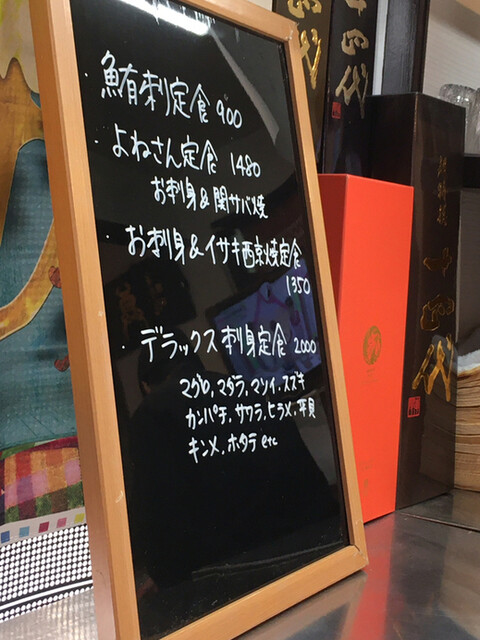 ・鮪刺定食 900
・よねさん定食 1480
お刺身&関サバ焼
・お刺身&イサキ西京焼定食
1350
・デラックス刺身定食 2000
マグロ、マダラ、マソイ、スズキ
カンパチ、サワラ、ヒラメ、平貝
キンメ、ホタテ etc
十四代
十四代